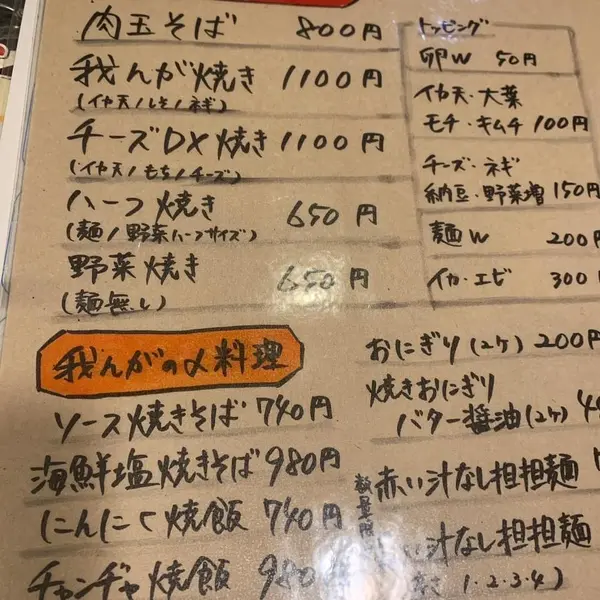 肉玉そば 800円
我んが焼き 1100円
(イカ天/もち/ネギ)
チーズDX焼き 1100円
(イカ天/もち/チーズ)
ハーフ焼き 650円
(麺/野菜ハーフサイズ)
野菜焼き 650円
(麺無し)
トッピング
卵W 50円
イカ天・大葉
モチ・キムチ 100円
チーズ・ネギ
納豆・野菜増 150円
麺W 200円
イカ・エビ 300
我んがの〆料理
ソース焼きそば 740円
海鮮塩焼きそば 980円
にんにく焼飯 740円
チャンヂャ焼飯 980
おにぎり(2ケ) 200円
焼きおにぎり
バター醤油(2ケ)
数量限
赤い汁なし担担麺
い汁なし担担麺
1・2・3・4)